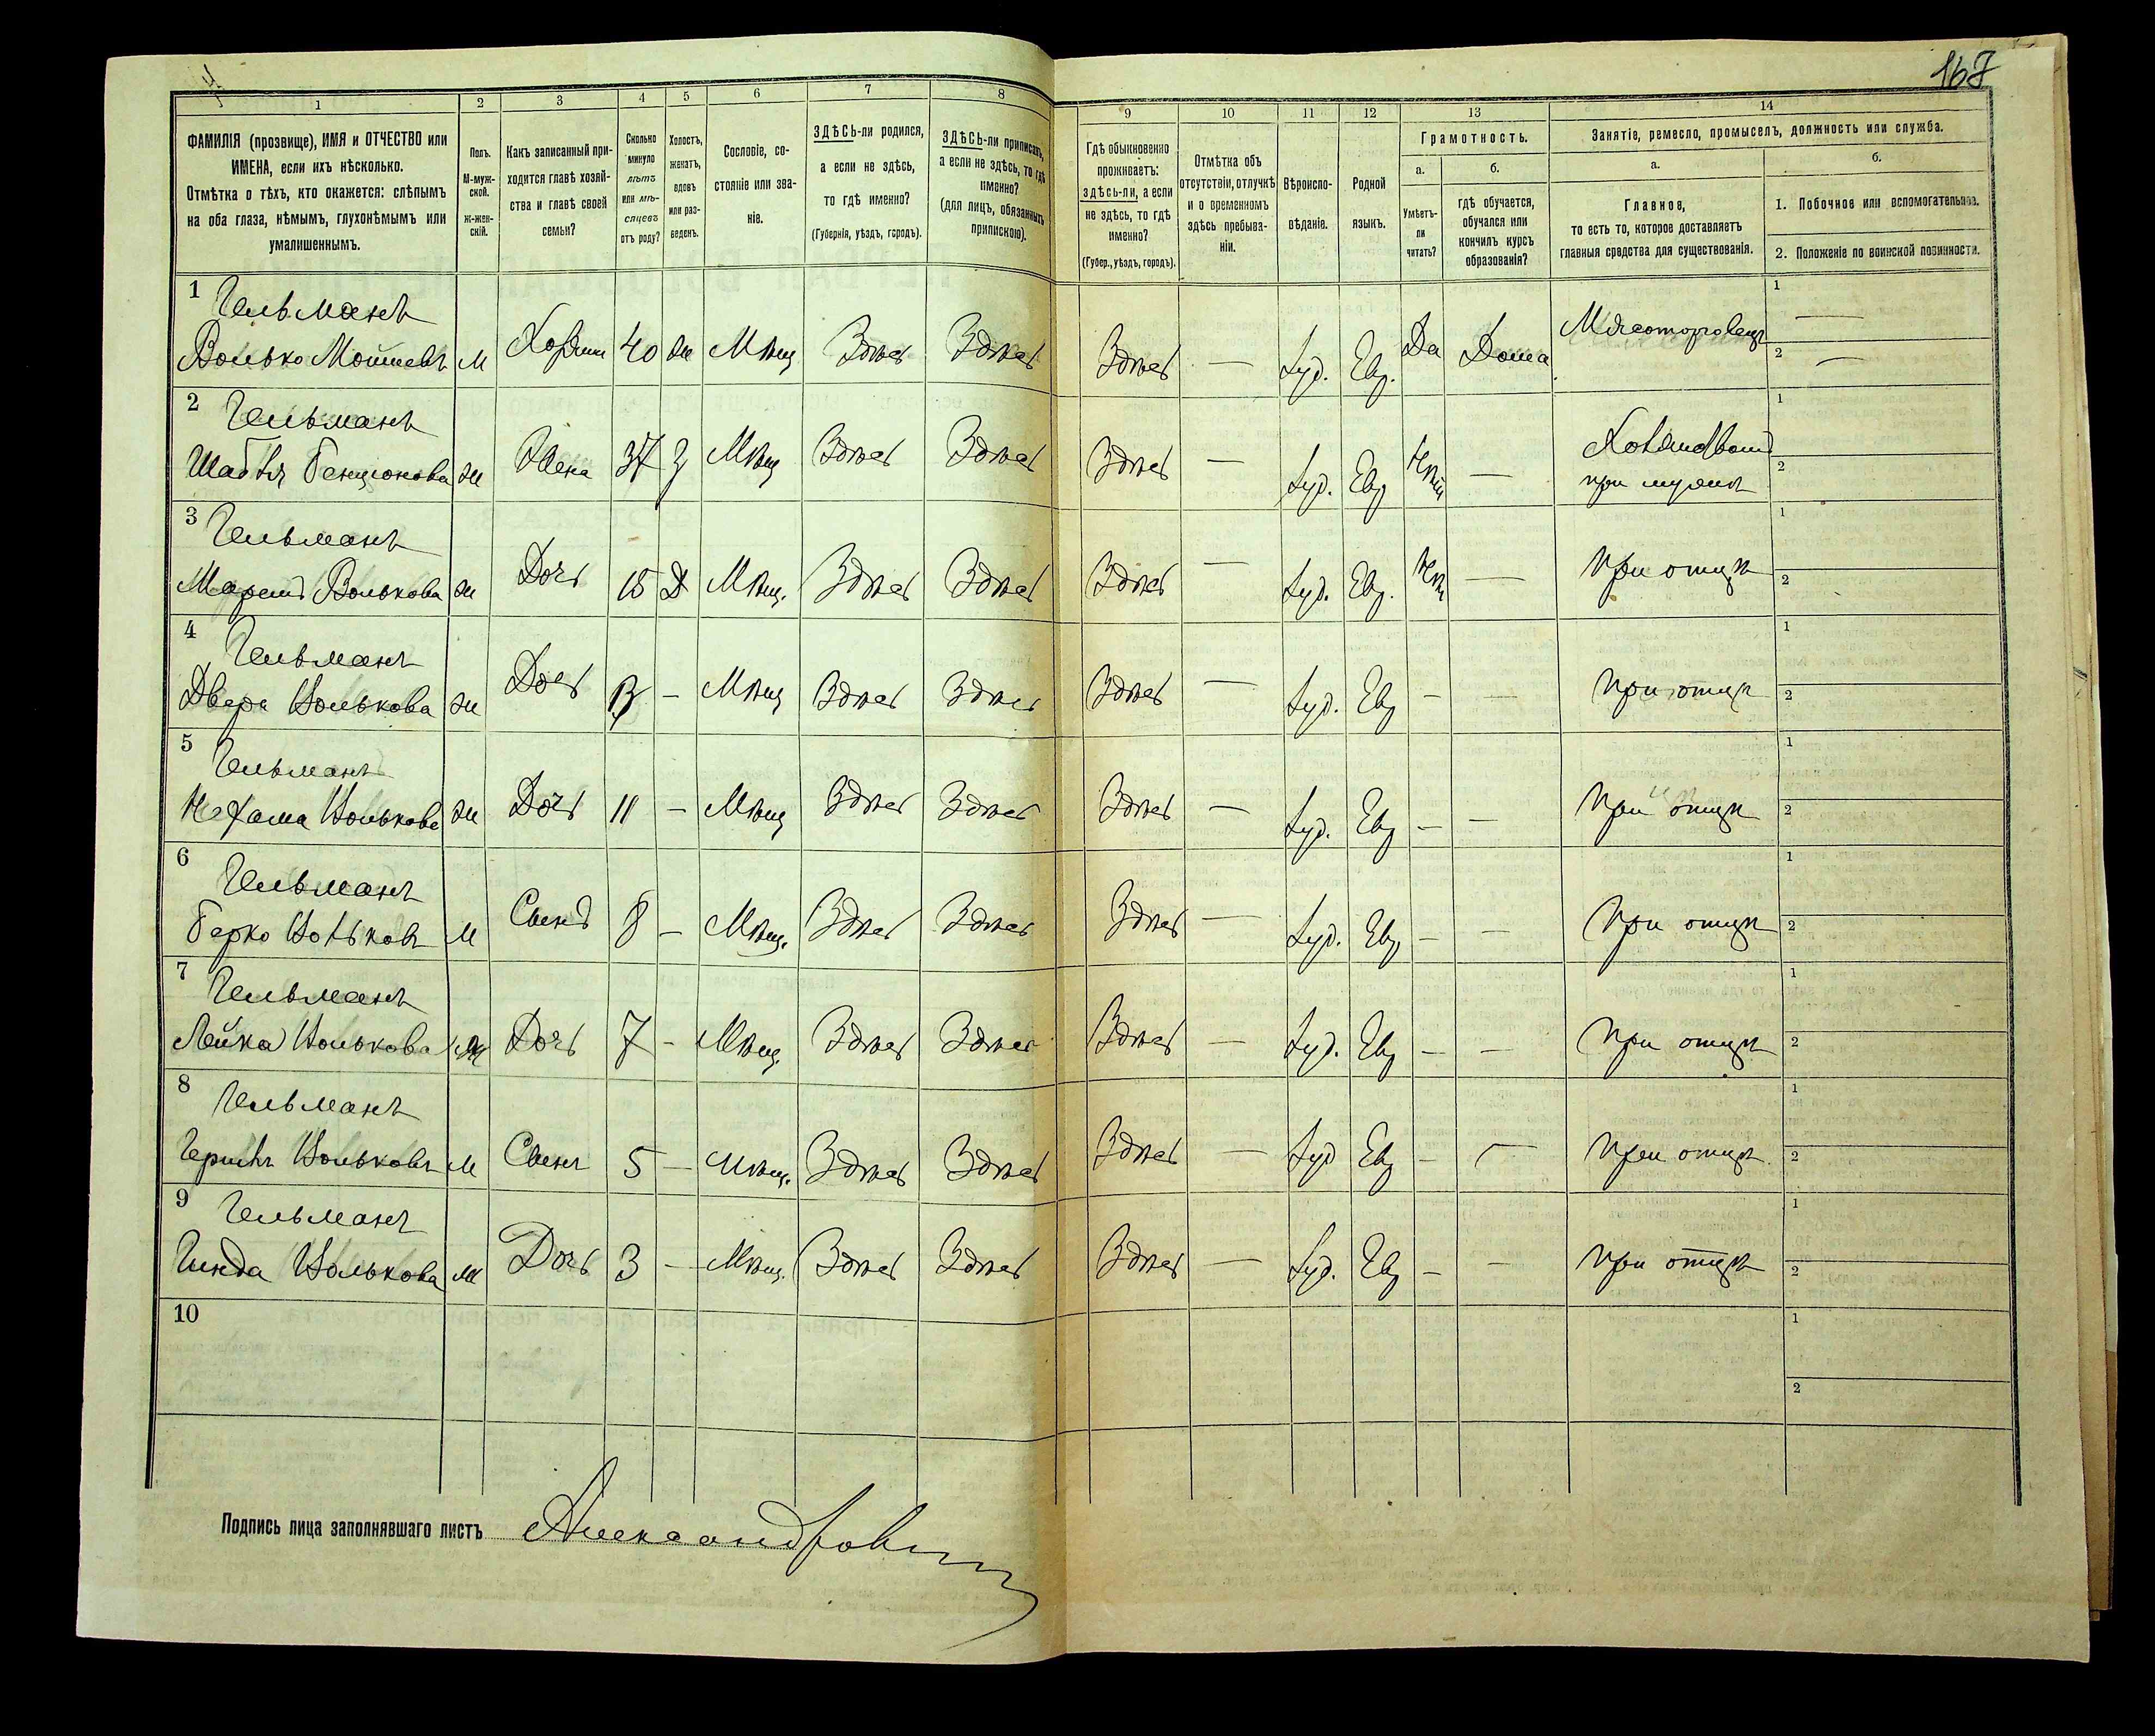 167
1 2 3 4 5 6 7 8 9 10 11 12 13 14
ФАМИЛІЯ (прозвище), ИМЯ и ОТЧЕСТВО или
ИМЕНА, если ихъ нѣсколько.
Отмѣтка о тѣхъ, кто окажется: слѣпымъ
на оба глаза, нѣмымъ, глухонѣмымъ или
умалишеннымъ.
Полъ.
М-муж-
ской.
ж-жен-
скій.
Какъ записанный при-
ходится главѣ хозяй-
ства и главѣ своей
семьи?
Сколько
минуло
лѣтъ
или мѣ-
сяцевъ
отъ роду?
Холостъ,
женатъ,
вдовъ
или раз-
веденъ.
Сословіе, со-
стояніе или зва-
ніе.
ЗДѢСЬ-ли родился,
а если не здѣсь,
то гдѣ именно?
(Губернія, уѣздъ, городъ).
ЗДѢСЬ-ли приписанъ,
а если не здѣсь, то гдѣ
именно?
(для лицъ, обязанныхъ
припискою).
Гдѣ обыкновенно
проживаетъ:
здѣсь-ли, а если
не здѣсь, то гдѣ
именно?
(Губер., уѣздъ, городъ).
Отмѣтка объ
отсутствіи, отлучкѣ
и о временномъ
здѣсь пребыва-
ніи.
Вѣроиспо-
вѣданіе.
Родной
языкъ.
Грамотность.
а.
Умѣетъ-
ли
читать?
б.
гдѣ обучается,
обучался или
кончилъ курсъ
образованія?
Занятіе, ремесло, промыселъ, должность или служба.
а.
Главное,
то есть то, которое доставляетъ
главныя средства для существованія.
б.
1. Побочное или вспомогательное.
2. Положеніе по воинской повинности.
1 Гельманъ
Волько Мошкевъ М Хозяин 40 ж Мѣщ Здѣсь Здѣсь Здѣсь — Іуд. Евр. Да Дома Мясоторговецъ 1 — 2 —
2 Гельманъ
Ж Жена 37 З Мѣщ Здѣсь Здѣсь Здѣсь — Іуд. Евр — при мужѣ 1 2
3 Гельманъ
Волькова ж Дочь 15 Д Мѣщ. Здѣсь Здѣсь Здѣсь — Іуд. Евр. — При отцѣ 1 2
4 Гельманъ
Двера Волькова ж Дочь 13 — Мѣщ Здѣсь Здѣсь Здѣсь — Іуд. Евр — — При отцѣ 1 2
5 Гельманъ
Нехама Волькова ж Дочь 11 — Мѣщ Здѣсь Здѣсь Здѣсь — Іуд. Евр — — При отцѣ 1 2
6 Гельманъ
Берко Вольковъ М Сынъ 8 — Мѣщ. Здѣсь Здѣсь Здѣсь — Іуд. Евр — — При отцѣ 1 2
7 Гельманъ
Лейка Волькова Ж Дочь 7 — Мѣщ. Здѣсь Здѣсь Здѣсь — Іуд. Евр — — При отцѣ 1 2
8 Гельманъ
Гершъ Вольковъ М Сынъ 5 — Мѣщ. Здѣсь Здѣсь Здѣсь — Іуд Евр — — При отцѣ 1 2
9 Гельманъ
Гинда Волькова Ж Дочь 3 — Мѣщ. Здѣсь Здѣсь Здѣсь — Іуд. Евр — — При отцѣ 1 2
10 1 2
Подпись лица заполнявшаго листъ